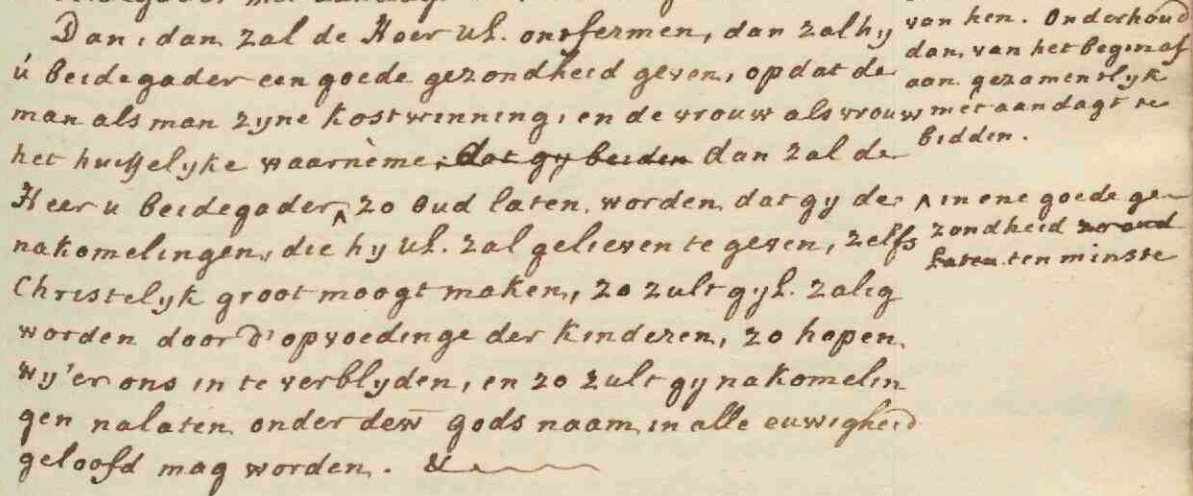 Dan, dan zal de Heer Ul. ontfermen, dan zal hy
ú beidegader een goede gezondheid geven, opdat de
man als man zyne kostwinning, en de vrouw als vrouw
het huisselyke waarnème; dat gy beiden dan zal de
Heer u beidegader ^ zo oud laten worden dat gy de
nakomelingen, die hy Ul. zal gelieven te geven, zelfs
Christelyk groot moogt maken, zo zult gyl. zalig
worden door d'opvoedinge der kinderen, zo hopen
wy 'er ons in te verblyden, en zo zult gy nakomelin
gen nalaten onder dew̄ gods naam in alle euwigheid
geloofd mag worden. &
van hen. Onderhoud
dan, van het begin af
aan gezamentlyk
met aandagt te
bidden.
^ in ene goede ge-
zondheid zo oud
laten ten minste